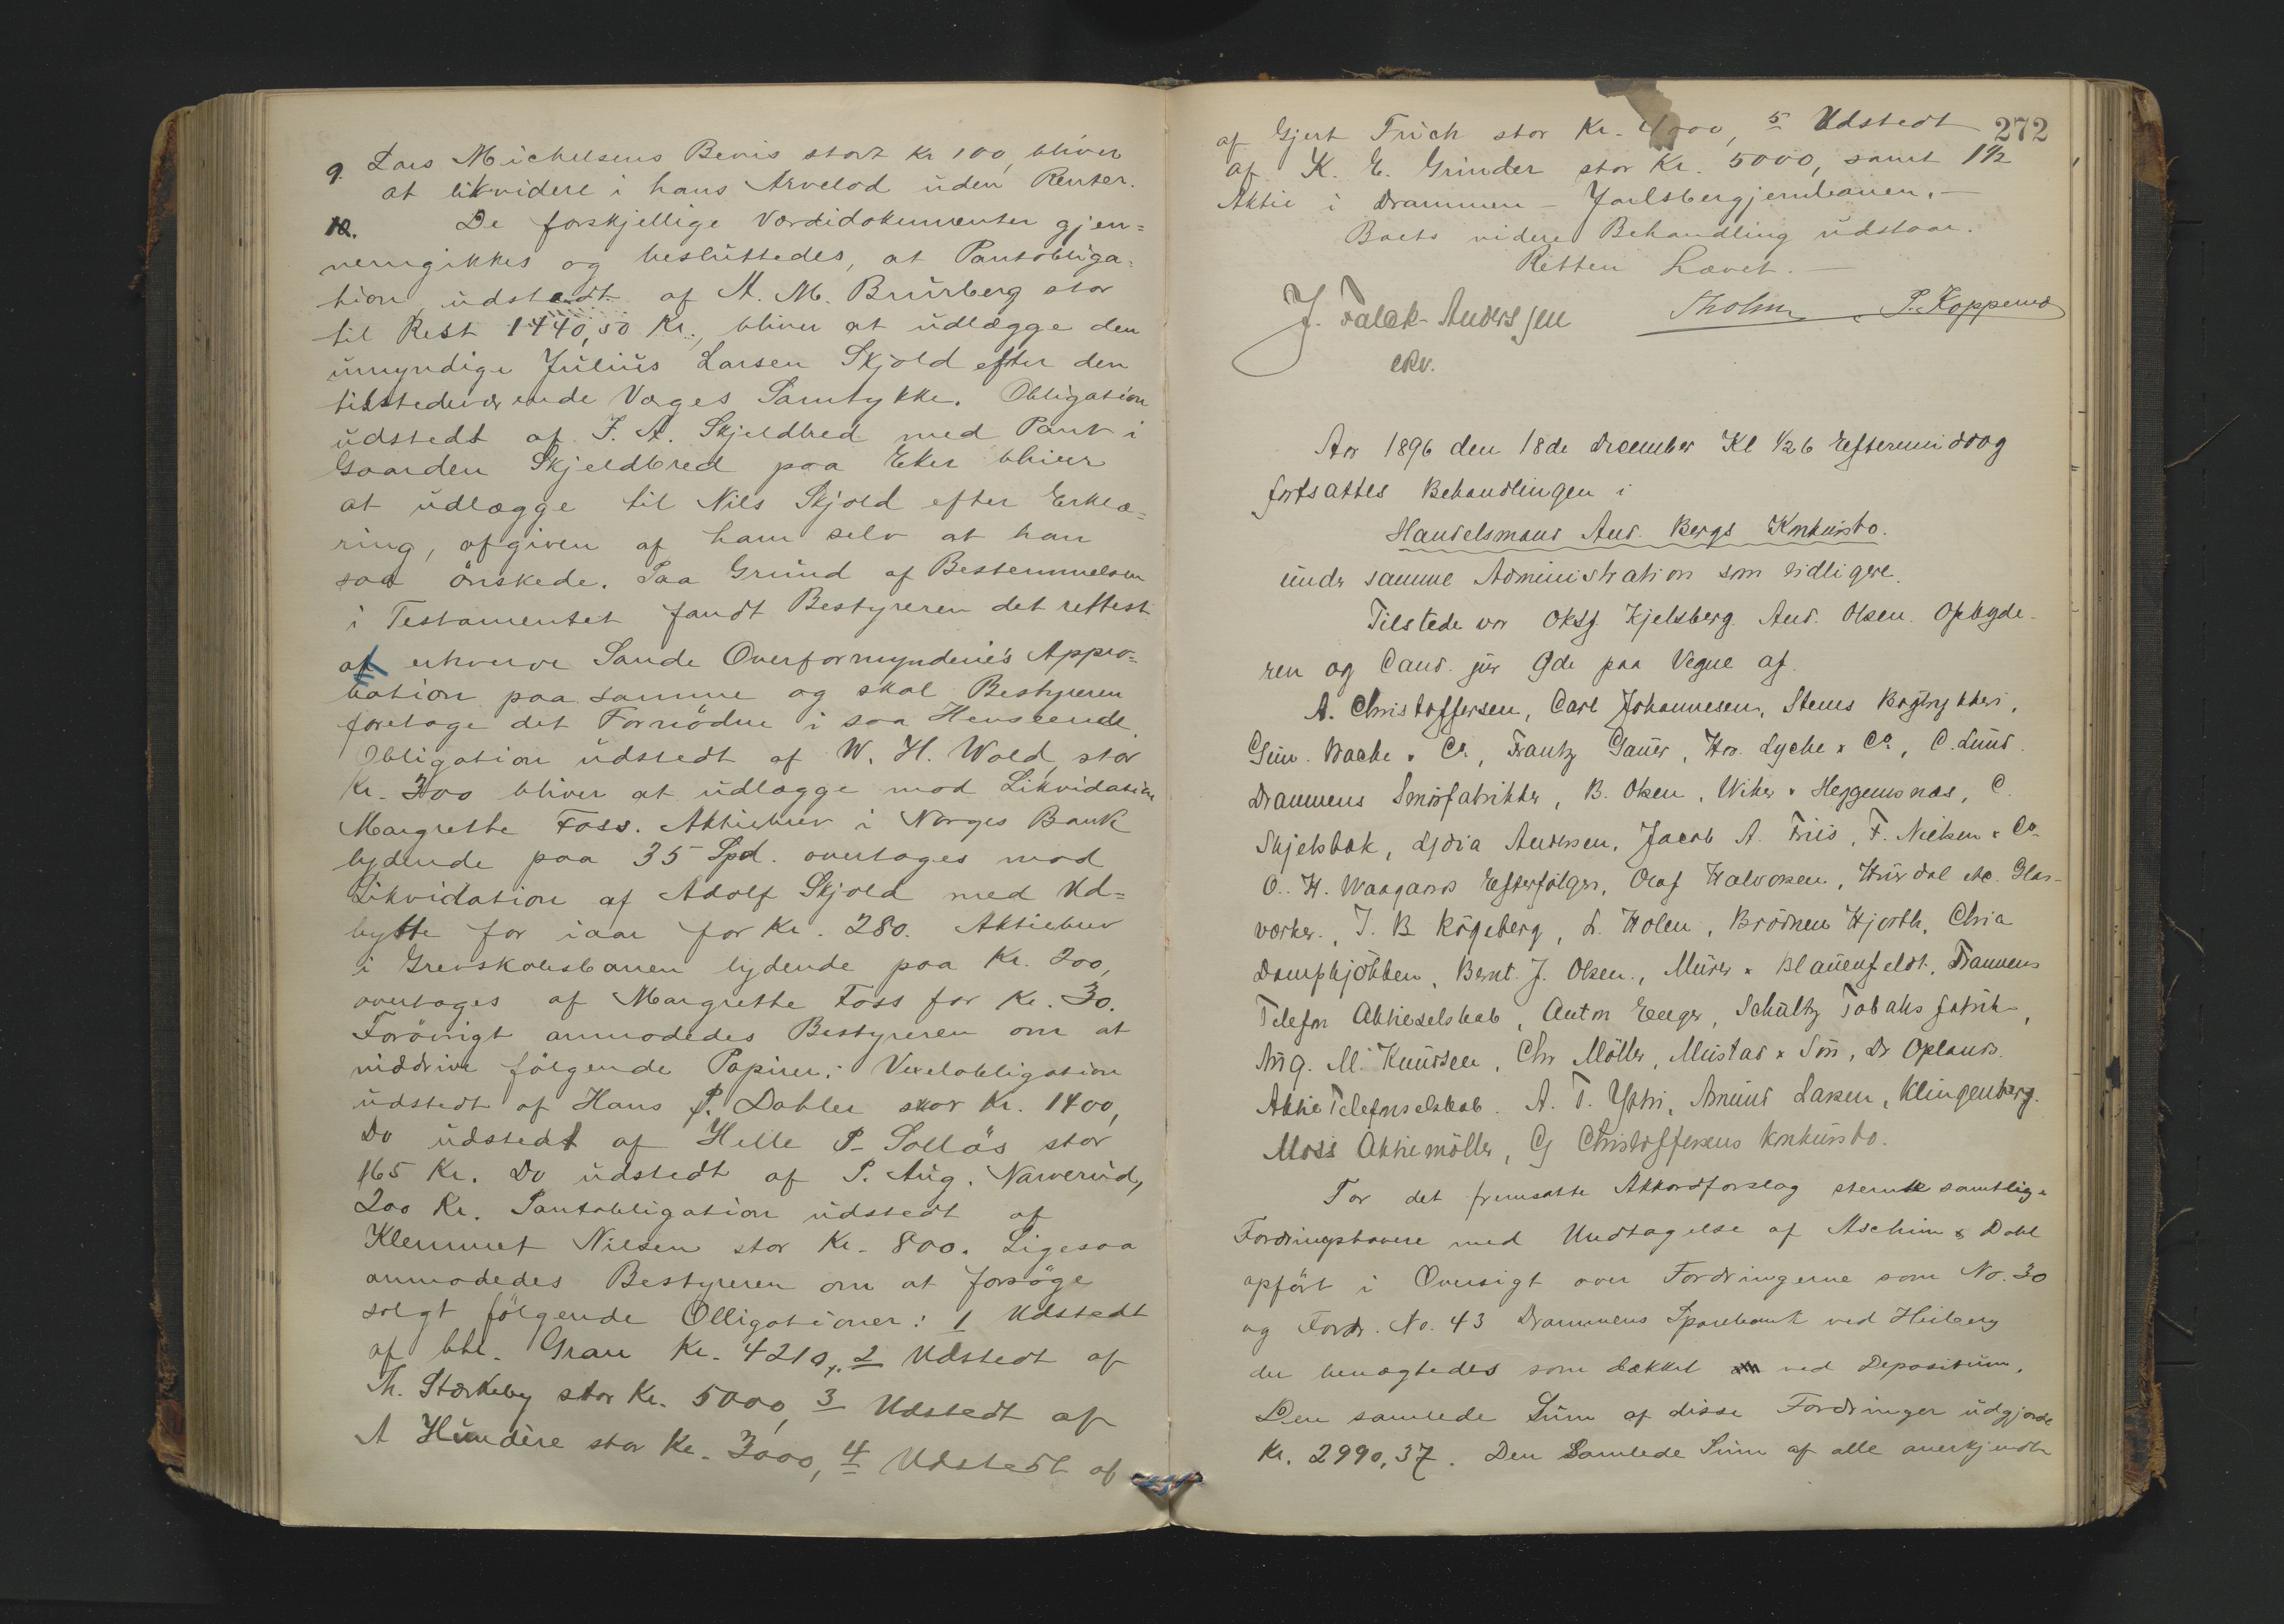 9. Lars Michelsens Bevis stort Kr 100, bliver
at likvidere i hans Arvelod uden Renter.
10. De forskjellige Værdidokumenter gjen=
nemgikkes og besluttedes, at Pantobliga=
tion, udstedt af A. M. Brurberg stor
til Rest 1440,50 Kr., bliver at udlægge den
umyndige Julius Larsen Skjold efter den
tilstedeværende Værges Samtykke. Obligation
udstedt af J. A. Skjeldbred med Pant i
Gaarden Skjeldbred paa Eker bliver
at udlægge til Nils Skjold efter Erklæ=
ring, afgiven af ham selv at han
saa önskede. Paa Grund af Bestemmelsen
i Testamentet fandt Bestyreren det rettest
at erhverve Sande Overformynderies Appro=
bation paa samme og skal Bestyreren
foretage det Fornödne i saa Henseende.
Obligation udstedt af W. H. Wold, stor
Kr. 300 bliver at udlægge mod Likvidation
Margrethe Foss. Aktiebrev i Norges Bank
lydende paa 35 Spd. overtages mod
Likvidation af Adolf Skjold med Ud=
bytte for iaar for Kr. 280. Aktiebrev
i Grevskabsbanen lydende paa Kr. 200,
overtages af Margrethe Foss for Kr. 30.
Forövrigt anmodedes Bestyreren om at
inddrive fölgende Papirer: Vexelobligation
udstedt af Hans P. Dahler stor Kr. 1400,
Do udstedt af Helle P. Sollös stor
165 Kr. Do udstedt af P. Aug. Narverud,
200 Kr. Pantobligation udstedt af
Klemmet Nilsen stor Kr. 800. Ligesaa
anmodedes Bestyreren om at forsöge
solgt fölgende Obligationer: 1 Udstedt
af Chr. Gran Kr. 4210, 2 Udstedt af
Th. Størkeby stor Kr. 5000, 3 Udstedt af
A Hundere stor Kr. 3000, 4 Udstedt af
272
af Gjert Frich stor Kr. 4000, 5 Udstedt
af K. E. Grinder stor Kr. 5000, samt 1½
Aktie i Drammen - Jarlsbergjernbanen. -
Boets videre Behandling udstaar.
Retten hævet. -
J. Falck-Andersen Tholm P. Koppernæs
ckv.
Aar 1896 den 18de December Kl ½6 Eftermiddag
fortsattes Behandlingen i
Handelsmand And. Bergs Konkursbo.
under samme Administration som tidligere.
Tilstede var Oksf. Kjelsberg. And. Olsen. Opbyde-
ren og Cand. jur Gde paa Vegne af
A. Christoffersen, Carl Johannesen, Steens Bogtrykkeri,
Gun. Bache & Co., Frantz Gauer, Hr. Lyche & Co., C. Lund.
Drammens Smörfabrikker, B. Olsen, Wiker & Heggemsnæs, C.
Skjelsbæk, Lydia Andersen, Jacob A. Friis, F. Nielsen & Co.
O. H. Waagaards Efterfølger, Olaf Halvorsen, Hurdal etc. Glas-
værker., J. B. Rögeberg, L. Holen, Brödrene Hjorth, Chria
Dampkjökken, Bernt. J. Olsen., Meier & Blauenfeldt, Drammens
Telefon Aktieselskab, Anton Eeeger, Schultz Tobaks fabrik,
Aug. M. Knudsen, Chr Möller, Mustad & Sön, Dr Oplands.
Aktie Telefonselskab. A. T. Yttri, Amund Larsen, Klingenberg.
Moss Aktiemölle, G Christoffersens Konkursbo.
For det fremsatte Akkordforslag stemte samtlige
Fordringshavere med Undtagelse af Aschim & Dahl
opfört i Oversigt over Fordringerne som No. 30
og Fordr. No. 43 Drammens Sparebank ved Heiberg
der benægtedes som dækket ved Depositum.
Den samlede Sum af disse Fordringer udgjorde
Kr. 2990,37. Den Samlede Sum af alle anerkjendte